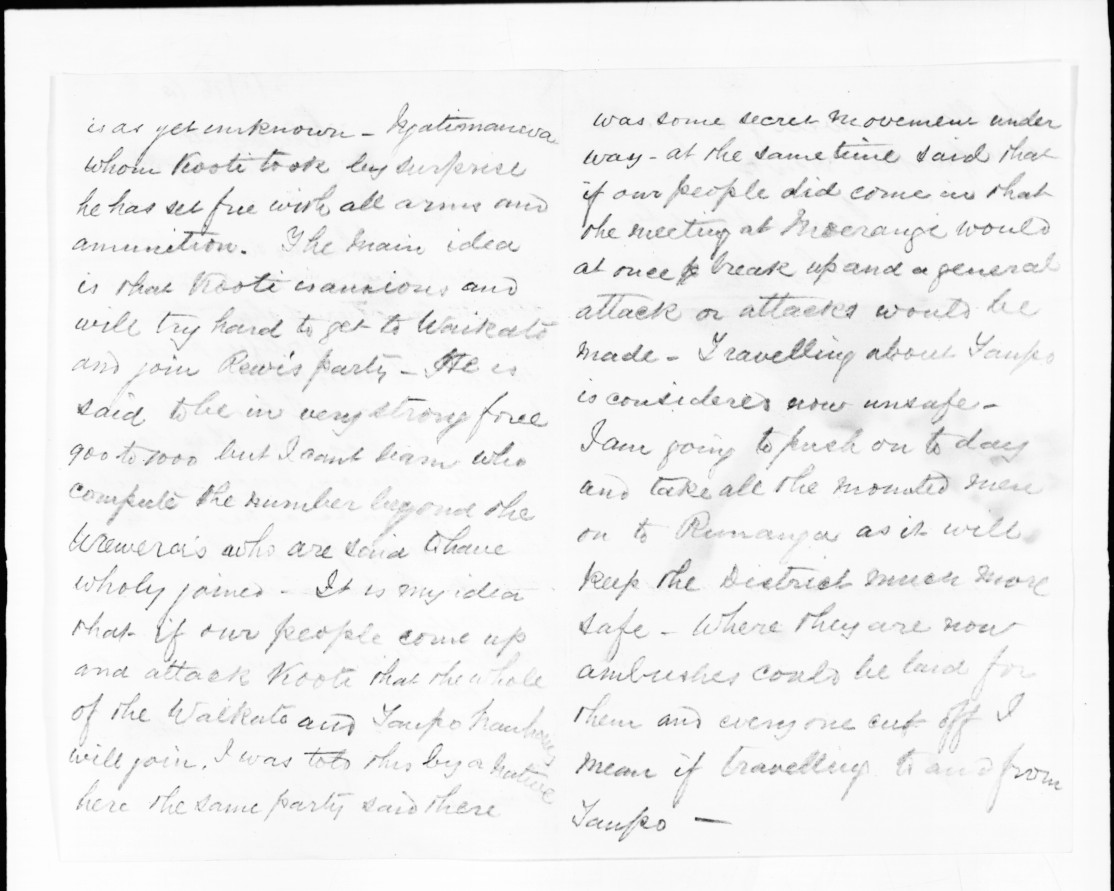 is as yet unknown - Ngatimanewa
whom Kooti took by surprise
he has set free with all arms and
amunition. The main idea
is that Kooti is anxious and
will try hard to get to Waikato
and join Rewi's party - He is
said to be in very strong force
900 to 1000 but I cant learn who
compute the number beyond the
Urewera's who are said to have
wholy joined - It is my idea
that if our people come up
and attack Kooti that the whole
of the Waikato and Taupo
will join. I was told this by a Native
here the same party said there
was some secret movement under
way - at the same time said that
if our people did come in that
the meeting at Moerangi would
at once break up and a general
attack or attacks would be
made - Travelling about Taupo
is considered now unsafe -
I am going to push on to day
and take all the mounted men
on to Runanga as it will
keep the District much more
safe - Where they are now
ambushes could be laid for
them and every one cut off I
mean if travelling to and from
Taupo -